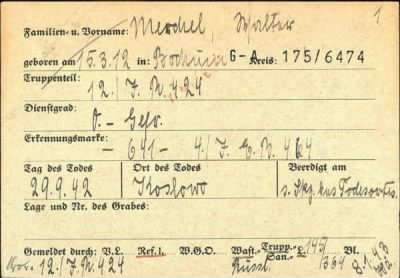 1
Familien- u. Vorname: Merchel, Walter
geboren am 15.3.12 in: Bochum G-A Kreis: 175/6474
Truppenteil:
12./J.R. 424
Dienstgrad:
O.-Gefr.
Erkennungsmarke:
- 641 - 4./J.E.R. 464
Tag des Todes Ort des Todes Beerdigt am
29.9.42 Koslowo s. Skz. des Todesortes
Lage und Nr. des Grabes:
Gemeldet durch: V.L. Ref.I. W.G.O. Wast.-Trupp.-San.- L. 145/364 Bl.
12./J.R. 424 Russl. 8.1.43